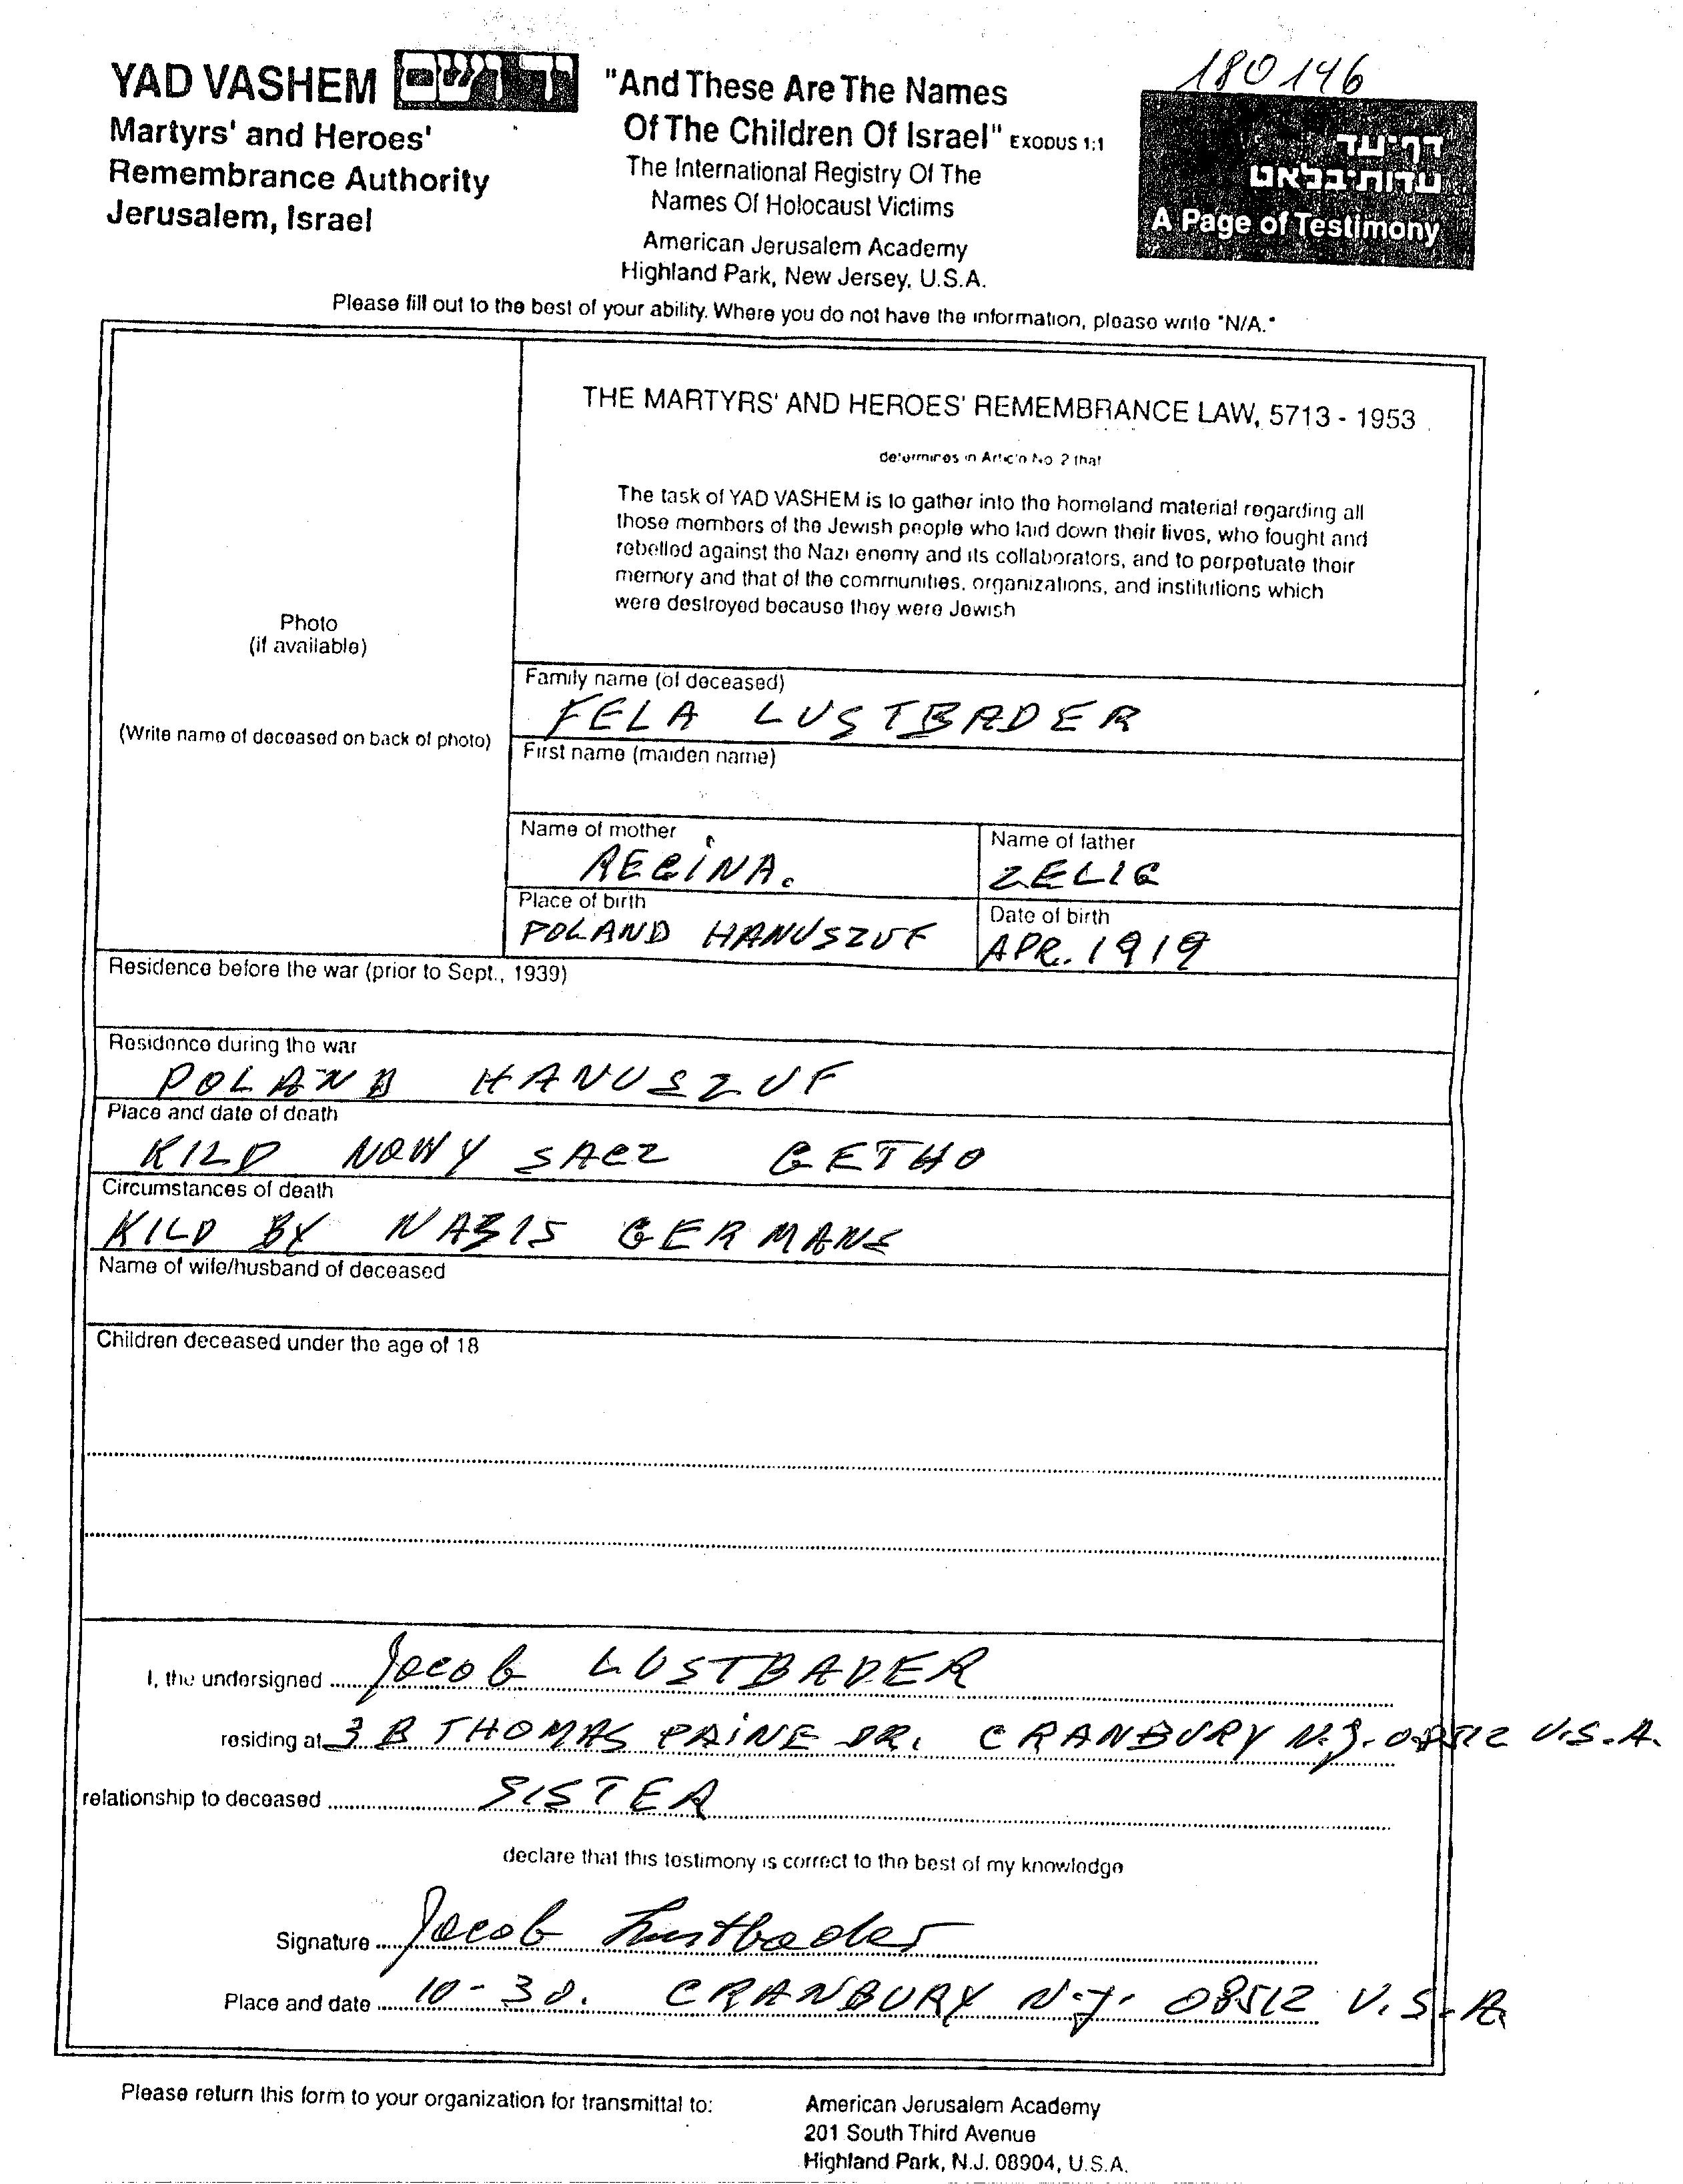 180146
YAD VASHEM יד ושם
Martyrs' and Heroes'
Remembrance Authority
Jerusalem, Israel
"And These Are The Names
Of The Children Of Israel" EXODUS 1:1
The International Registry Of The
Names Of Holocaust Victims
American Jerusalem Academy
Highland Park, New Jersey, U.S.A.
דף־עד
עדות־בלאט
A Page of Testimony
Please fill out to the best of your ability. Where you do not have the information, please write "N/A."
Photo
(if available)
(Write name of deceased on back of photo)
THE MARTYRS' AND HEROES' REMEMBRANCE LAW, 5713 - 1953
determines in Article No. 2 that
The task of YAD VASHEM is to gather into the homeland material regarding all
those members of the Jewish people who laid down their lives, who fought and
rebelled against the Nazi enemy and its collaborators, and to perpetuate their
memory and that of the communities, organizations, and institutions which
were destroyed because they were Jewish
Family name (of deceased)
FELA LUSTBADER
First name (maiden name)
Name of mother
REGINA.
Name of father
ZELIG
Place of birth
POLAND HANUSZUF
Date of birth
APR. 1919
Residence before the war (prior to Sept., 1939)
Residence during the war
POLAND HANUSZUF
Place and date of death
KILD NOWY SACZ GETHO
Circumstances of death
KILD BY NAZIS GERMANS
Name of wife/husband of deceased
Children deceased under the age of 18
I, the undersigned Jacob LUSTBADER
residing at 3 B THOMAS PAINE DR. CRANBURY N.J. 08512 U.S.A.
relationship to deceased SISTER
declare that this testimony is correct to the best of my knowledge
Signature Jacob Lustbader
Place and date 10-30. CRANBURY N.J. 08512 U.S.A
Please return this form to your organization for transmittal to:
American Jerusalem Academy
201 South Third Avenue
Highland Park, N.J. 08904, U.S.A.